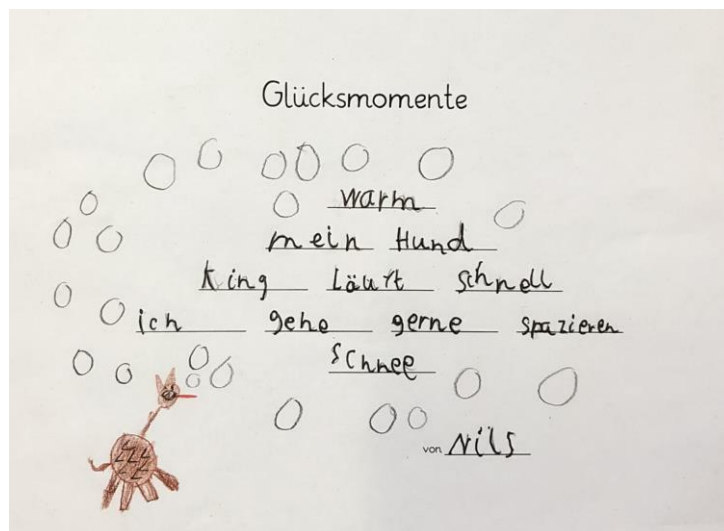 Glücksmomente
warm
mein Hund
King läuft schnell
ich gehe gerne spazieren
Schnee
von Nils